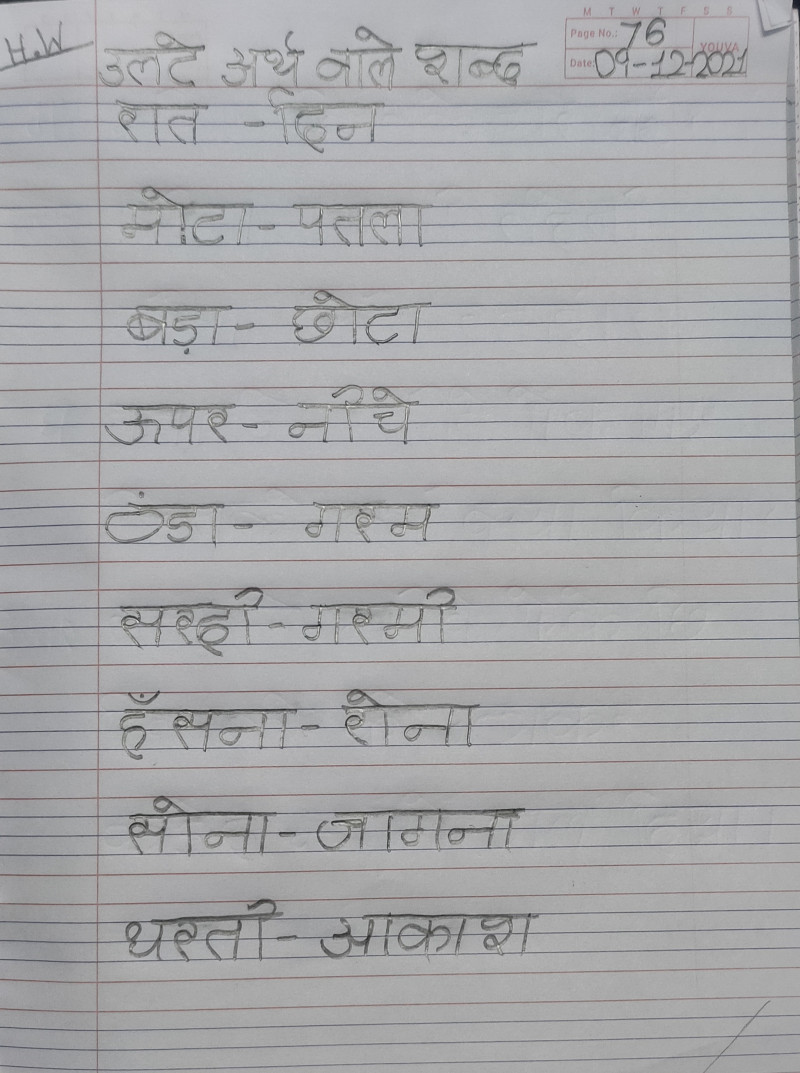 M T W T F S S
H.W
Page No.: 76
YOUVA
Date: 09-12-2021
उलटे अर्थ वाले शब्द
रात - दिन
मोटा - पतला
बड़ा - छोटा
ऊपर - नीचे
ठंडा - गरम
सरदी - गरमी
हँसना - रोना
सोना - जागना
धरती - आकाश